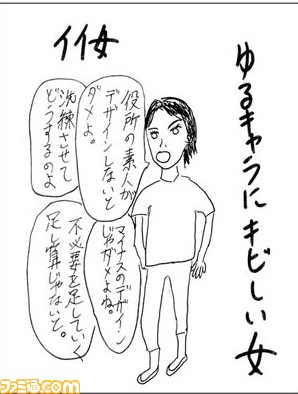 ゆるキャラにキビしい女
イイ女
役所の素人が
デザインしないと
ダメよ。
洗練させて
どうするのよ
マイナスのデザイン
じゃダメよね。
不必要を足していく
足し算じゃないと。
ファミ通.com